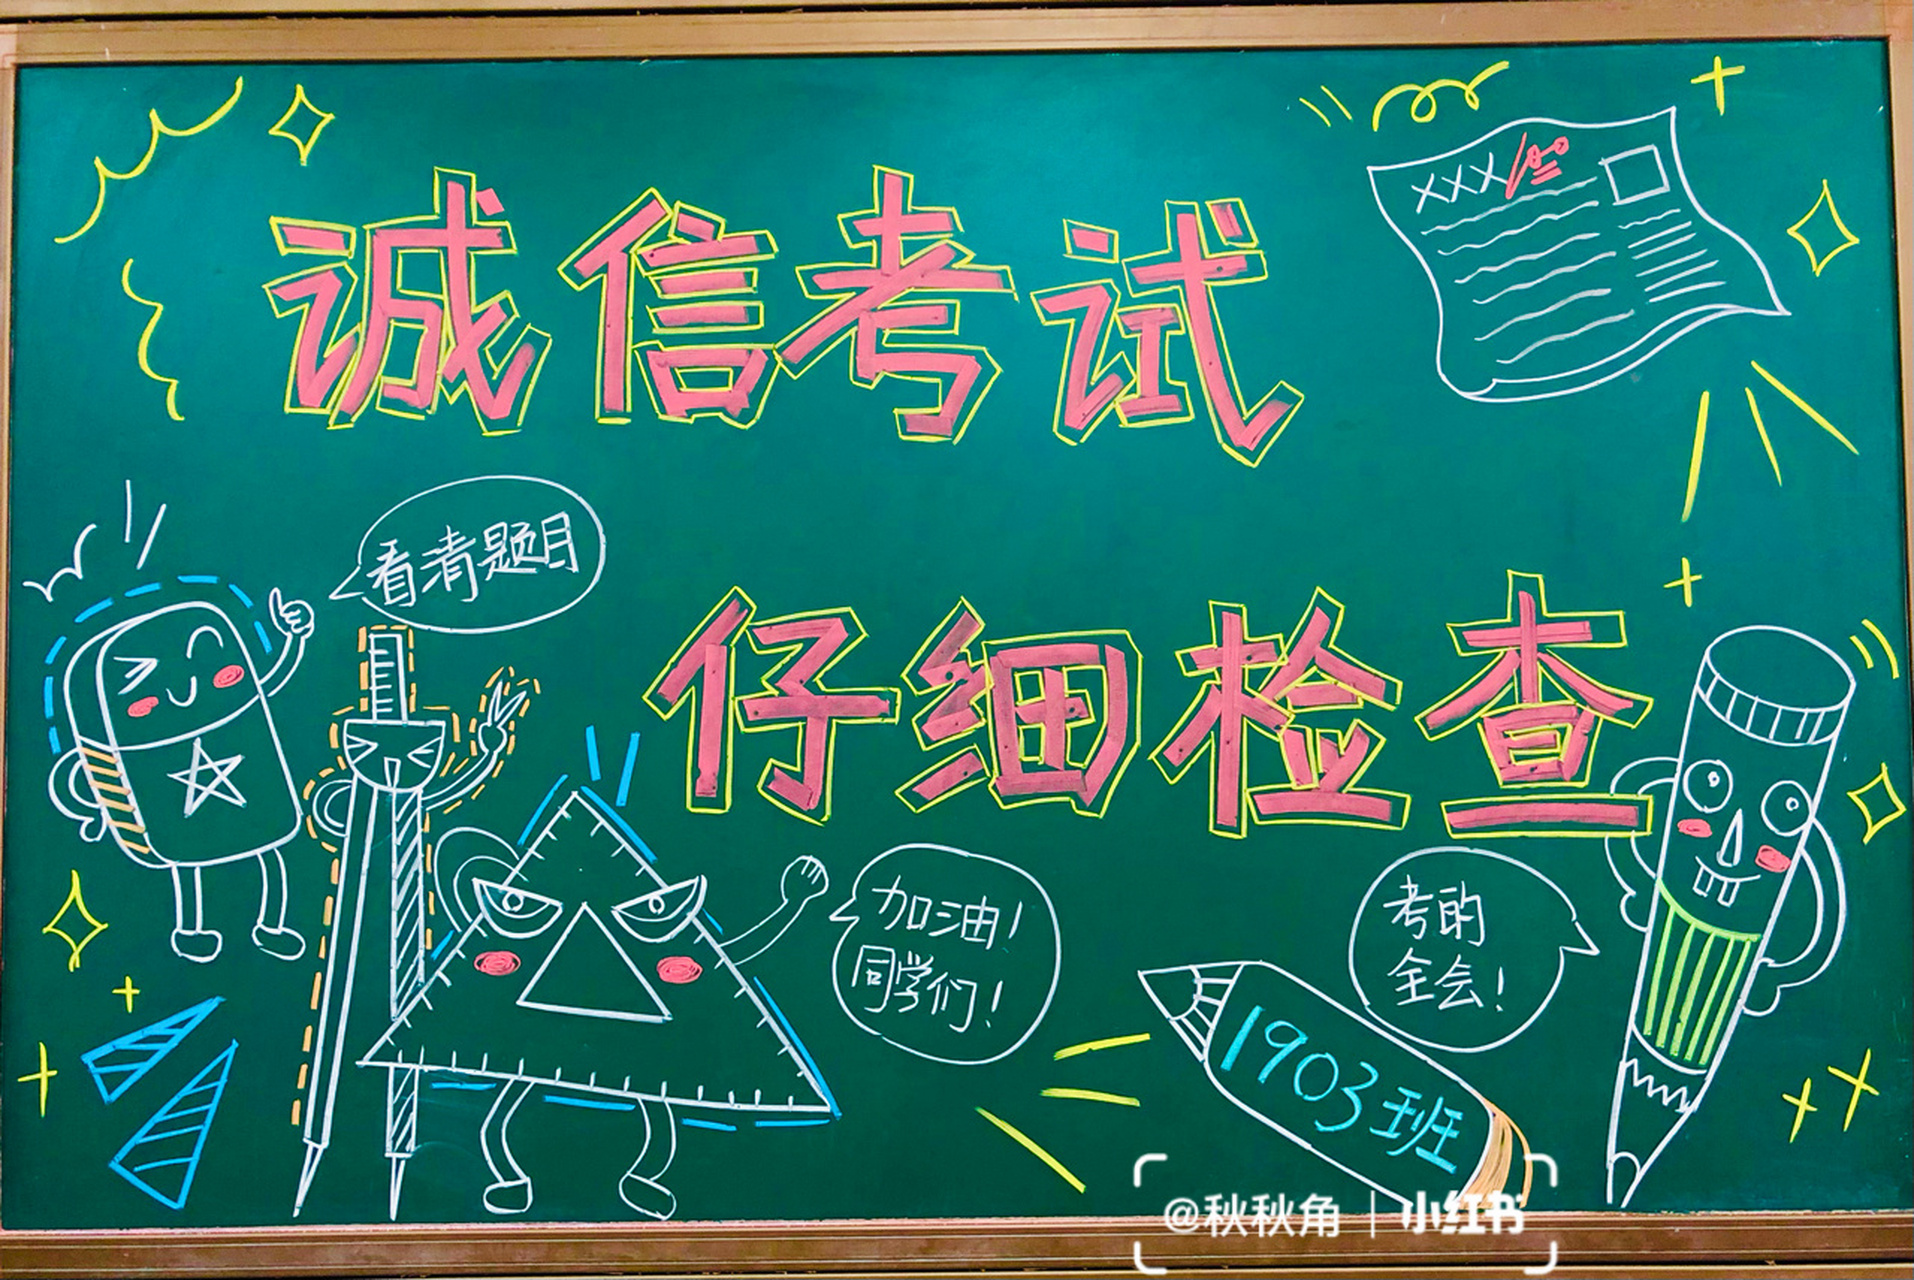 诚信考试
XXX 100
看清题目
仔细检查
加油!
同学们!
考的
全会!
1903班
@秋秋角 | 小红书